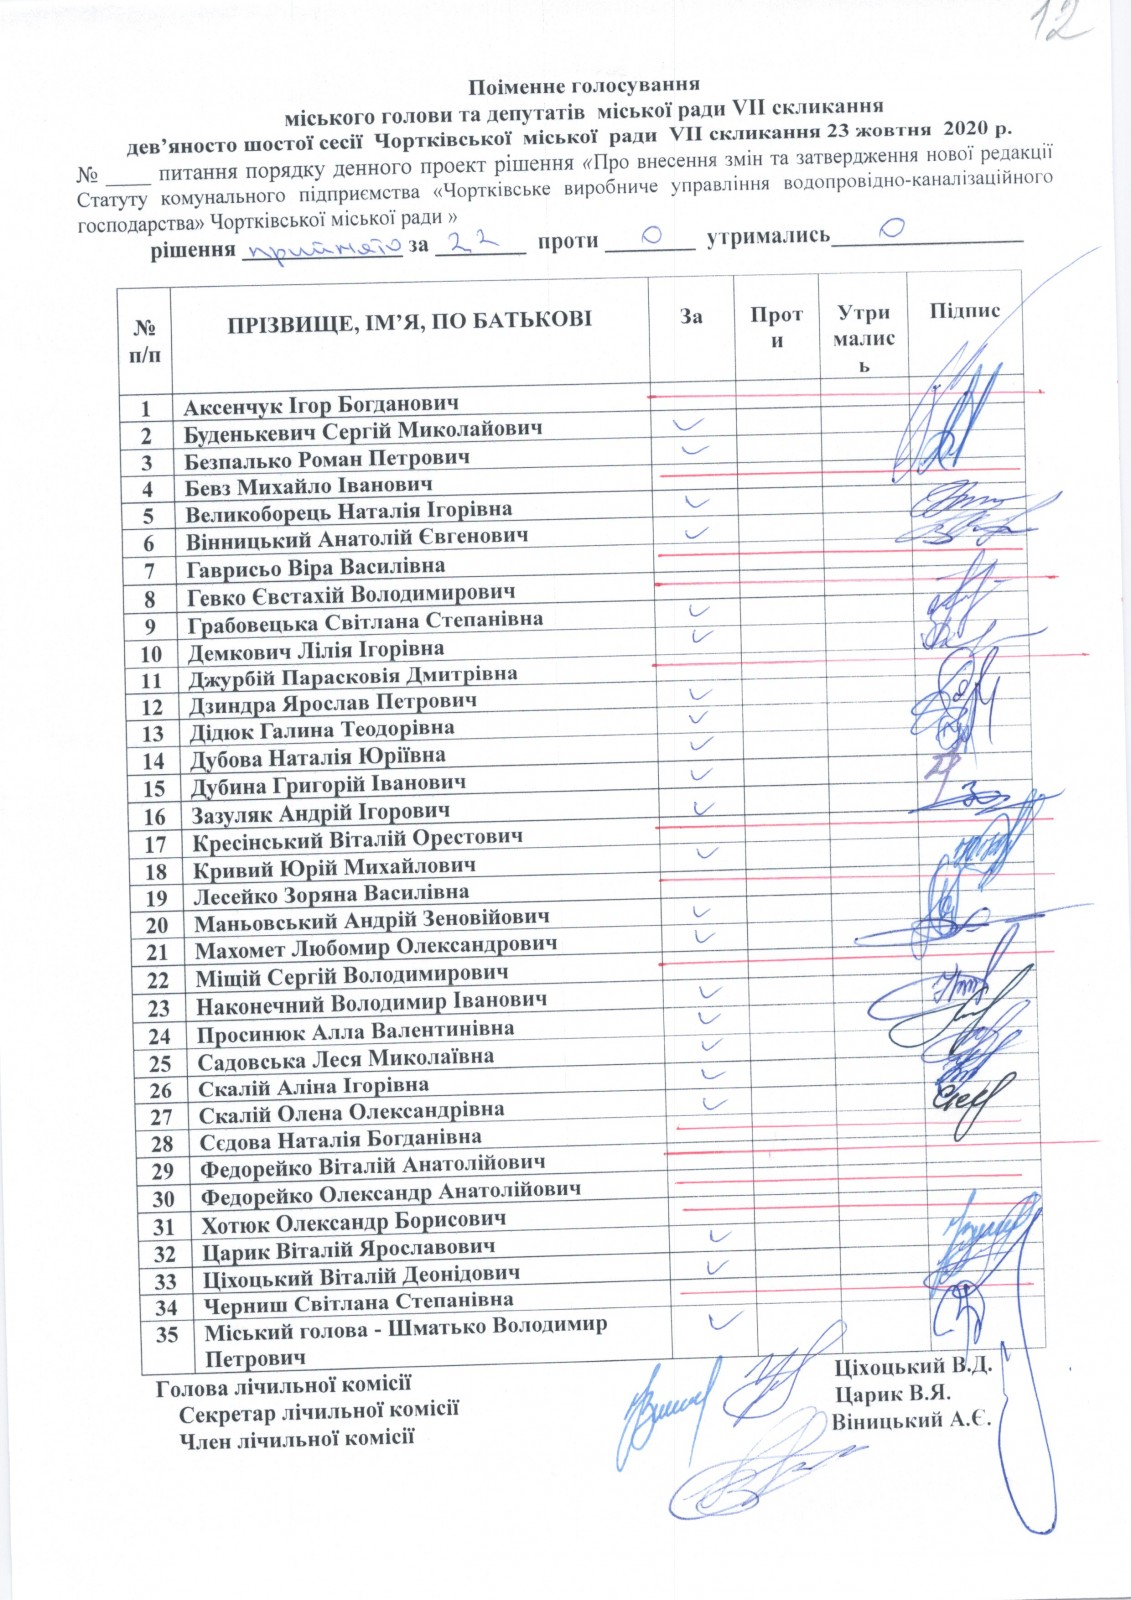 12
Поіменне голосування
міського голови та депутатів міської ради VII скликання
дев’яносто шостої сесії Чортківської міської ради VII скликання 23 жовтня 2020 р.
№ ____ питання порядку денного проект рішення «Про внесення змін та затвердження нової редакції
Статуту комунального підприємства «Чортківське виробниче управління водопровідно-каналізаційного
господарства» Чортківської міської ради »
рішення прийнято за 22 проти 0 утримались 0
№ п/п ПРІЗВИЩЕ, ІМ’Я, ПО БАТЬКОВІ За Прот и Утри малис ь Підпис
1 Аксенчук Ігор Богданович
2 Буденькевич Сергій Миколайович ✓
3 Безпалько Роман Петрович ✓
4 Бевз Михайло Іванович
5 Великоборець Наталія Ігорівна ✓
6 Вінницький Анатолій Євгенович ✓
7 Гаврисьо Віра Василівна
8 Гевко Євстахій Володимирович
9 Грабовецька Світлана Степанівна ✓
10 Демкович Лілія Ігорівна ✓
11 Джурбій Парасковія Дмитрівна
12 Дзиндра Ярослав Петрович ✓
13 Дідюк Галина Теодорівна ✓
14 Дубова Наталія Юріївна ✓
15 Дубина Григорій Іванович ✓
16 Зазуляк Андрій Ігорович ✓
17 Кресінський Віталій Орестович
18 Кривий Юрій Михайлович ✓
19 Лесейко Зоряна Василівна
20 Маньовський Андрій Зеновійович ✓
21 Махомет Любомир Олександрович ✓
22 Міщій Сергій Володимирович
23 Наконечний Володимир Іванович ✓
24 Просинюк Алла Валентинівна ✓
25 Садовська Леся Миколаївна ✓
26 Скалій Аліна Ігорівна ✓
27 Скалій Олена Олександрівна ✓
28 Сєдова Наталія Богданівна
29 Федорейко Віталій Анатолійович
30 Федорейко Олександр Анатолійович
31 Хотюк Олександр Борисович
32 Царик Віталій Ярославович ✓
33 Ціхоцький Віталій Деонідович ✓
34 Черниш Світлана Степанівна
35 Міський голова - Шматько Володимир ✓
Петрович
Голова лічильної комісії Ціхоцький В.Д.
Секретар лічильної комісії Царик В.Я.
Член лічильної комісії Віницький А.Є.